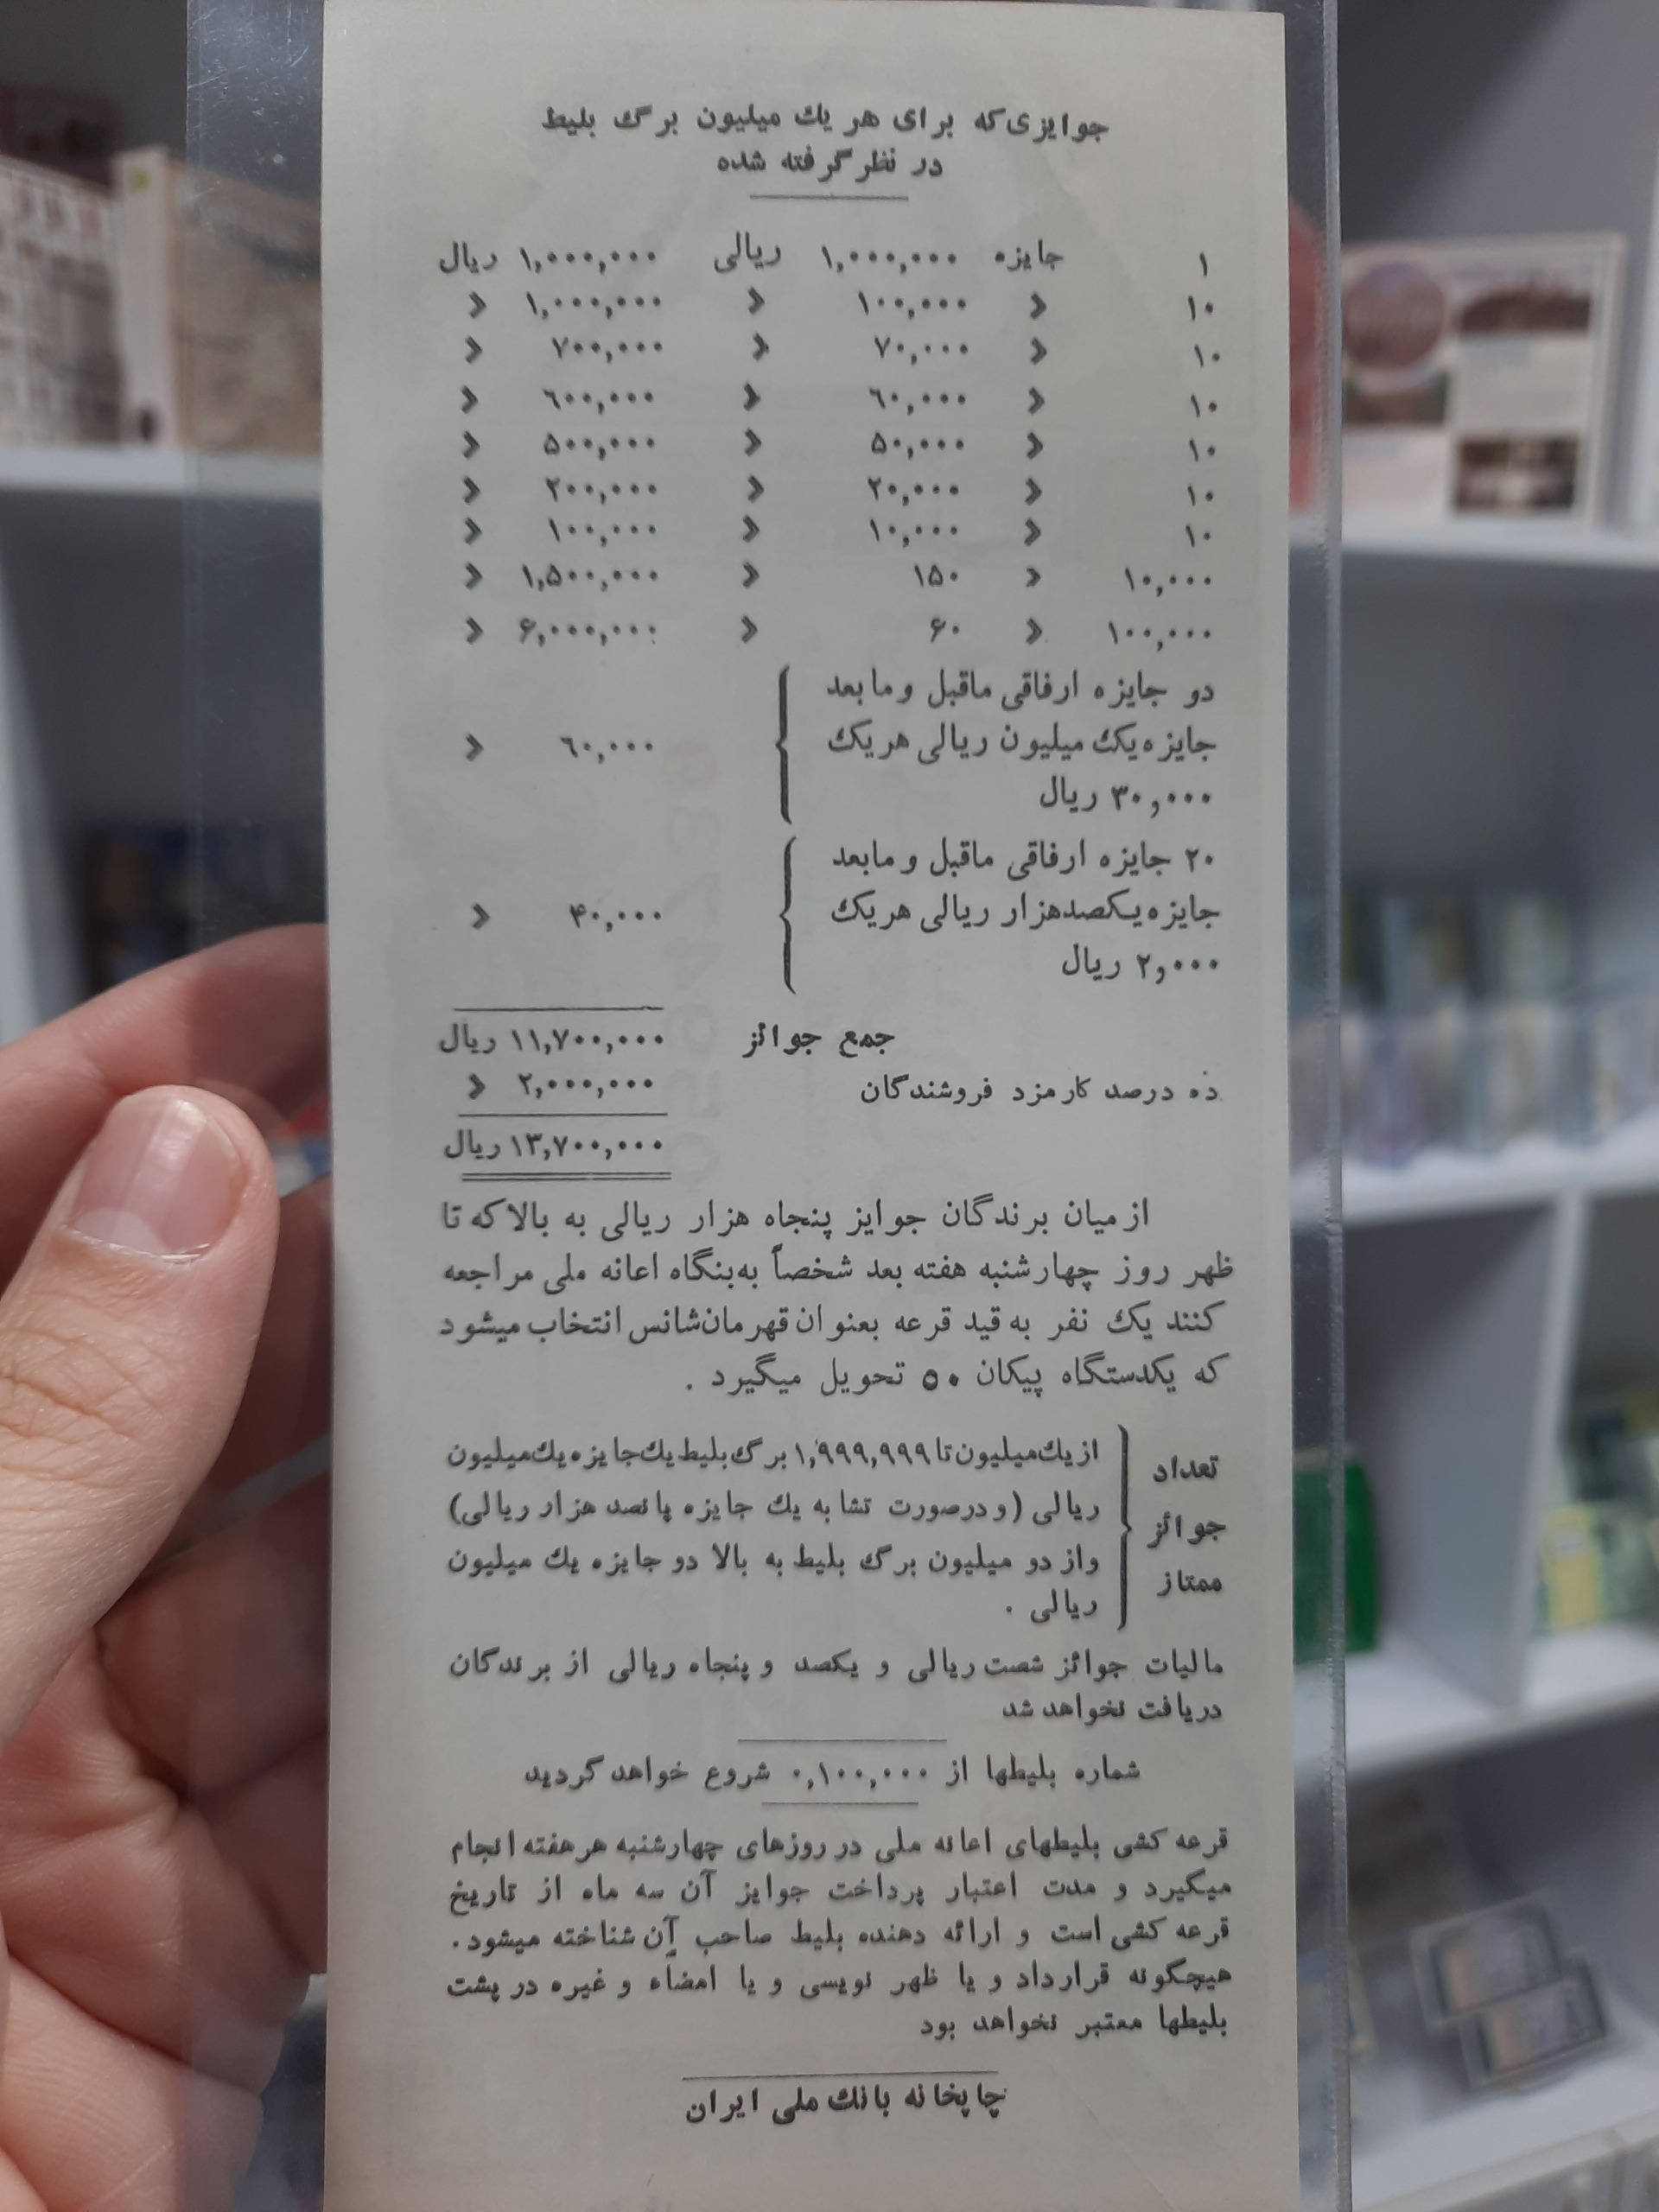 جوایزی که برای هر یك میلیون برگ بلیط
در نظر گرفته شده
۱ جایزه ۱,۰۰۰,۰۰۰ ریالی ۱,۰۰۰,۰۰۰ ریال
۱۰ » ۱۰۰,۰۰۰ » ۱,۰۰۰,۰۰۰ »
۱۰ » ۷۰,۰۰۰ » ۷۰۰,۰۰۰ »
۱۰ » ٦۰,۰۰۰ » ٦۰۰,۰۰۰ »
۱۰ » ۵۰,۰۰۰ » ۵۰۰,۰۰۰ »
۱۰ » ۲۰,۰۰۰ » ۲۰۰,۰۰۰ »
۱۰ » ۱۰,۰۰۰ » ۱۰۰,۰۰۰ »
۱۰,۰۰۰ » ۱۵۰ » ۱,۵۰۰,۰۰۰ »
۱۰۰,۰۰۰ » ۶۰ » ۶,۰۰۰,۰۰۰ »
دو جایزه ارفاقی ماقبل و مابعد
جایزه یك میلیون ریالی هر یك ٦۰,۰۰۰ »
۳۰,۰۰۰ ریال
۲۰ جایزه ارفاقی ماقبل و مابعد
جایزه یکصدهزار ریالی هر یك ۴۰,۰۰۰ »
۲,۰۰۰ ریال
جمع جوائز ۱۱,۷۰۰,۰۰۰ ریال
ده درصد کارمزد فروشندگان ۲,۰۰۰,۰۰۰ »
۱۳,۷۰۰,۰۰۰ ریال
از میان برندگان جوایز پنجاه هزار ریالی به بالا که تا
ظهر روز چهارشنبه هفته بعد شخصاً به بنگاه اعانه ملی مراجعه
کنند یك نفر به قید قرعه بعنوان قهرمان شانس انتخاب میشود
که یکدستگاه پیکان ۵۰ تحویل میگیرد .
تعداد جوائز ممتاز
از یك میلیون تا ۱,۹۹۹,۹۹۹ برگ بلیط یك جایزه یك میلیون
ریالی (و درصورت تشابه یك جایزه پانصد هزار ریالی)
واز دو میلیون برگ بلیط به بالا دو جایزه یك میلیون
ریالی .
مالیات جوائز شصت ریالی و یکصد و پنجاه ریالی از برندگان
دریافت نخواهد شد
شماره بلیطها از ۰,۱۰۰,۰۰۰ شروع خواهد گردید
قرعه کشی بلیطهای اعانه ملی در روزهای چهارشنبه هر هفته انجام
میگیرد و مدت اعتبار پرداخت جوایز آن سه ماه از تاریخ
قرعه کشی است و ارائه دهنده بلیط صاحب آن شناخته میشود.
هیچگونه قرارداد و یا ظهر نویسی و یا امضاء و غیره در پشت
بلیطها معتبر نخواهد بود
چاپخانه بانك ملی ایران